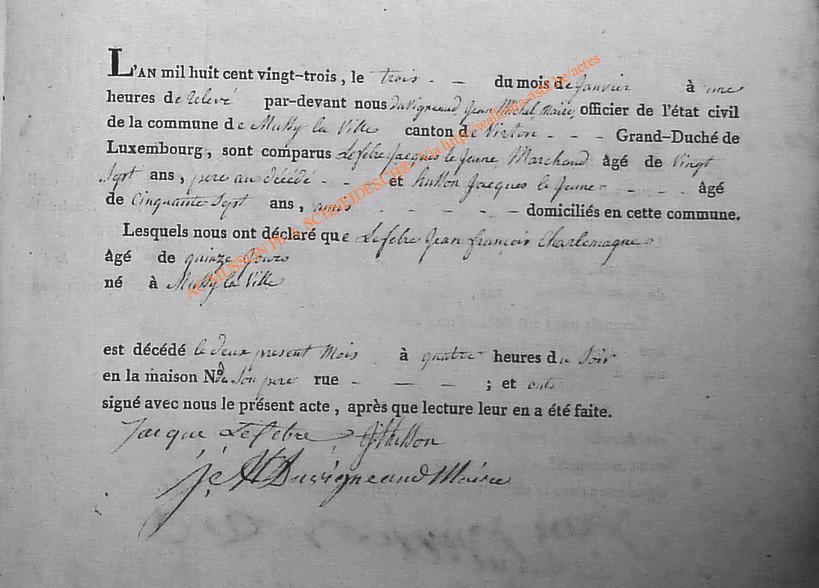 L'AN mil huit cent vingt-trois, le trois - - du mois de Janvier à une
heures de relevé par-devant nous Duvigneaud Jean Michel Maire, officier de l'état civil
de la commune de Mussy la Ville canton de Virton - - - Grand-Duché de
Luxembourg, sont comparus Lefebre Jacques le Jeune, Marchand âgé de vingt
Sept ans, pere au décédé - - et husson Jacques le Jeune - - - âgé
de Cinquante Sept ans, amis - - - - - - domiciliés en cette commune.
Lesquels nous ont déclaré que Lefebre Jean françois Charlemagne
âgé de quinze Jours
né à Mussy la Ville
est décédé le deux présent Mois à quatre heures du Soir
en la maison N.º de Son pere rue - - - - ; et ont
signé avec nous le présent acte, après que lecture leur en a été faite.
Jacque Lefebre JHusson
Duvigneaud Maire